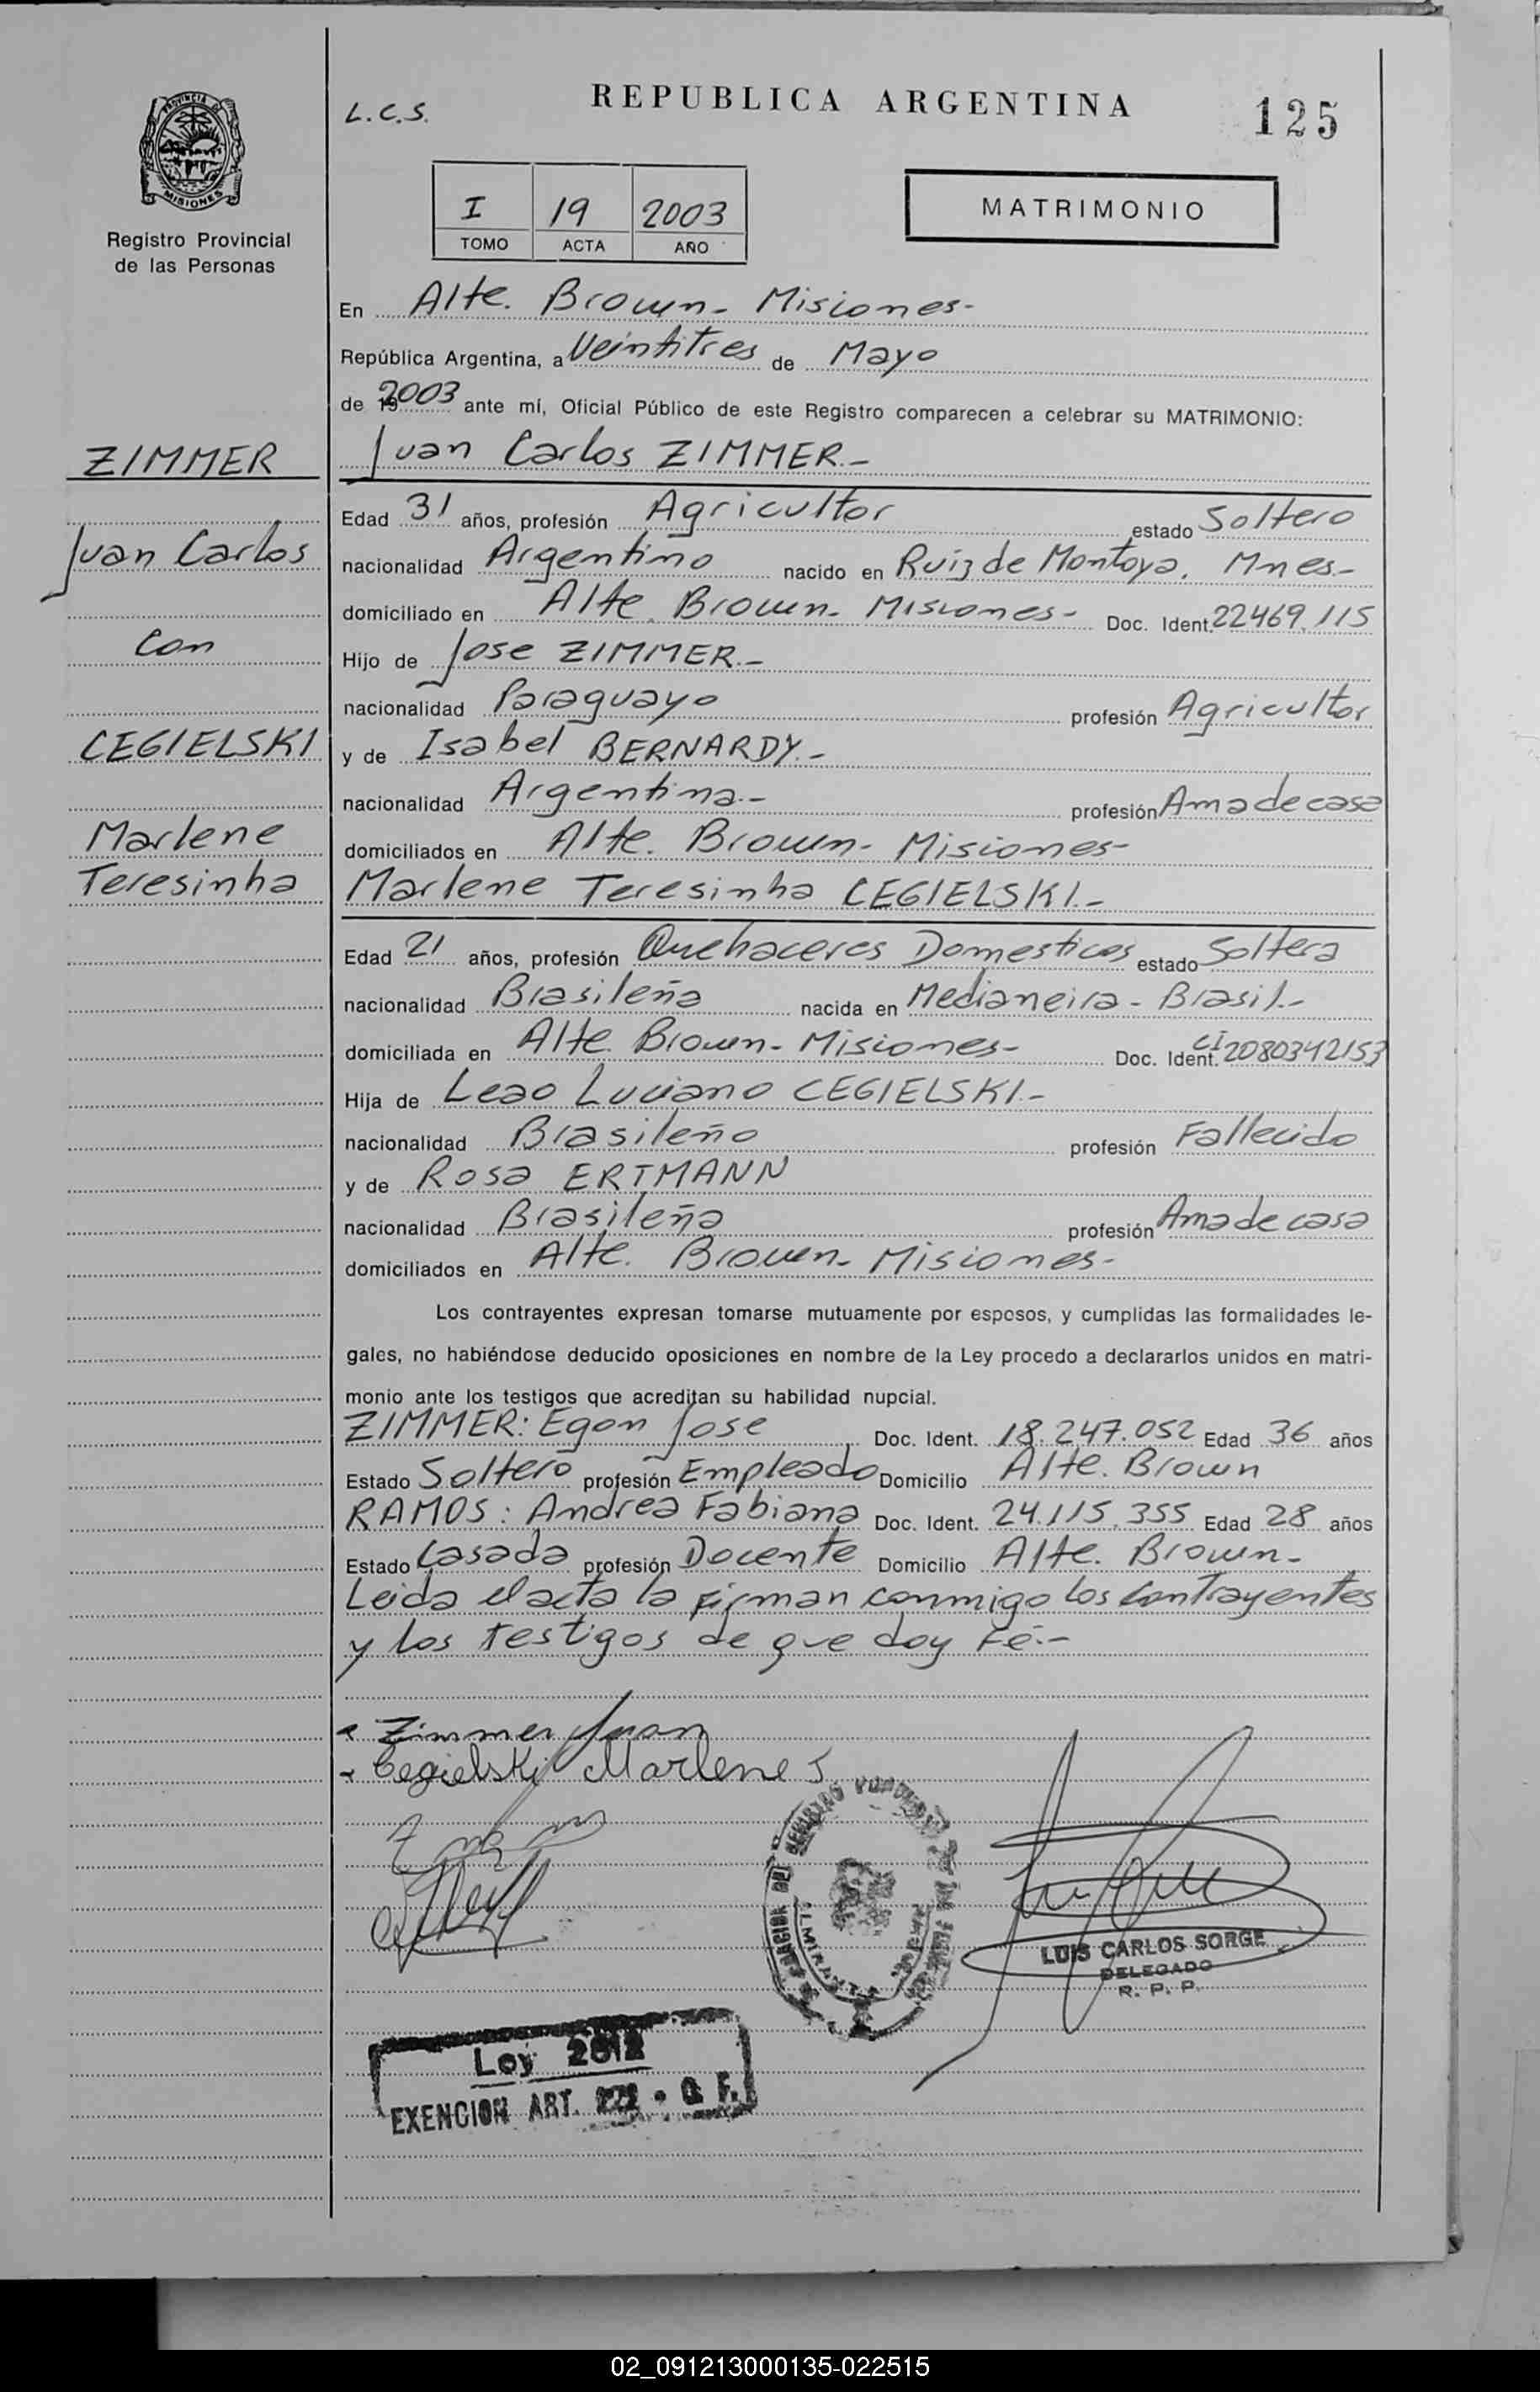 REPUBLICA ARGENTINA
L.C.S.
125
PROVINCIA DE MISIONES
Registro Provincial
de las Personas
I 19 2003
TOMO ACTA AÑO
MATRIMONIO
En Alte. Brown - Misiones -
República Argentina, a Veintitres de Mayo
de 2003 ante mí, Oficial Público de este Registro comparecen a celebrar su MATRIMONIO:
ZIMMER
Juan Carlos
con
CEGIELSKI
Marlene
Teresinha
Juan Carlos ZIMMER.-
Edad 31 años, profesión Agricultor estado Soltero
nacionalidad Argentino nacido en Ruiz de Montoya, Mnes-
domiciliado en Alte. Brown - Misiones - Doc. Ident. 22469.115
Hijo de Jose ZIMMER.-
nacionalidad Paraguayo profesión Agricultor
y de Isabel BERNARDY.-
nacionalidad Argentina.- profesión Ama de casa
domiciliados en Alte. Brown - Misiones -
Marlene Teresinha CEGIELSKI.-
Edad 21 años, profesión Quehaceres Domesticos estado Soltera
nacionalidad Brasileña nacida en Medianeira - Brasil.-
domiciliada en Alte. Brown - Misiones - Doc. Ident. CI 2080342153
Hija de Leao Luciano CEGIELSKI.-
nacionalidad Brasileño profesión Fallecido
y de Rosa ERTMANN
nacionalidad Brasileña profesión Ama de casa
domiciliados en Alte. Brown - Misiones -
Los contrayentes expresan tomarse mutuamente por esposos, y cumplidas las formalidades le-
gales, no habiéndose deducido oposiciones en nombre de la Ley procedo a declararlos unidos en matri-
monio ante los testigos que acreditan su habilidad nupcial.
ZIMMER: Egon Jose Doc. Ident. 18.247.052 Edad 36 años
Estado Soltero profesión Empleado Domicilio Alte. Brown
RAMOS: Andrea Fabiana Doc. Ident. 24.115.355 Edad 28 años
Estado Casada profesión Docente Domicilio Alte. Brown -
Leida el acta la firman conmigo los contrayentes
y los testigos de que doy Fé.-
Zimmer Juan
Cegielski Marlene
LUIS CARLOS SORGE
DELEGADO
R. P. P.
Ley 2812
EXENCION ART. 272 - C. F.
02_091213000135-022515